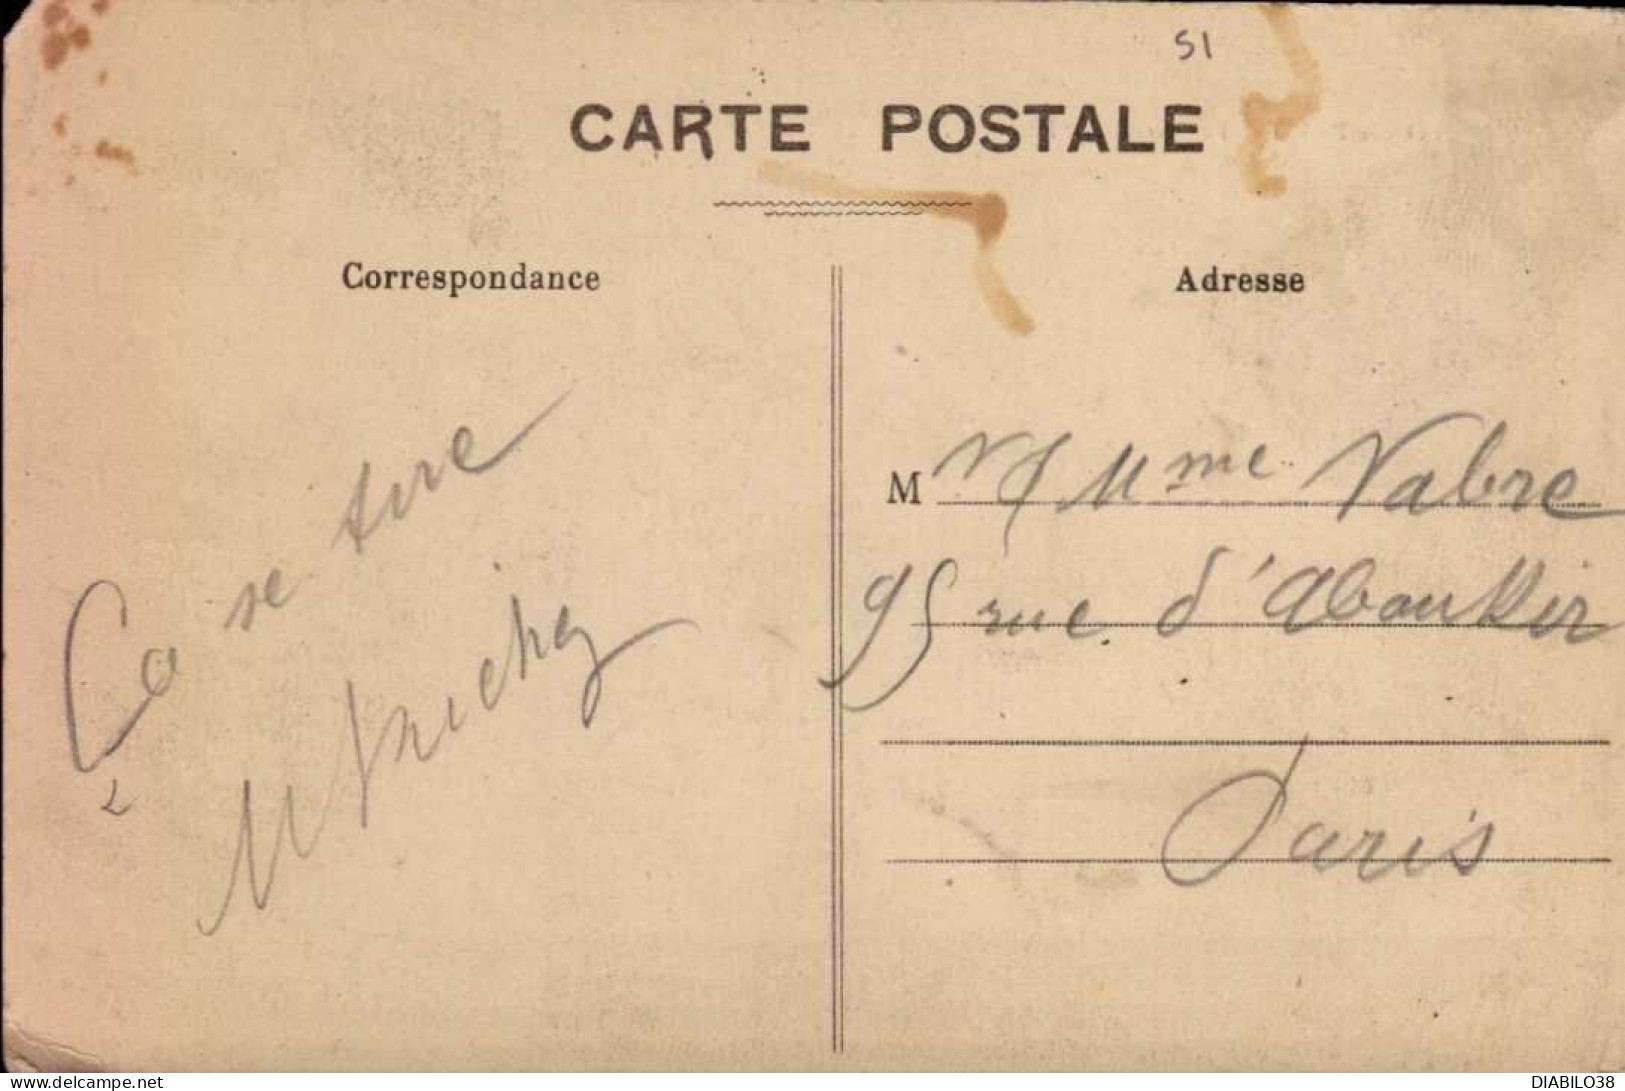 51
CARTE POSTALE
Correspondance
Ça se tire
Adresse
M r & Mme Vabre
95 rue d'Aboukir
Paris
www.delcampe.net
DIABILO38